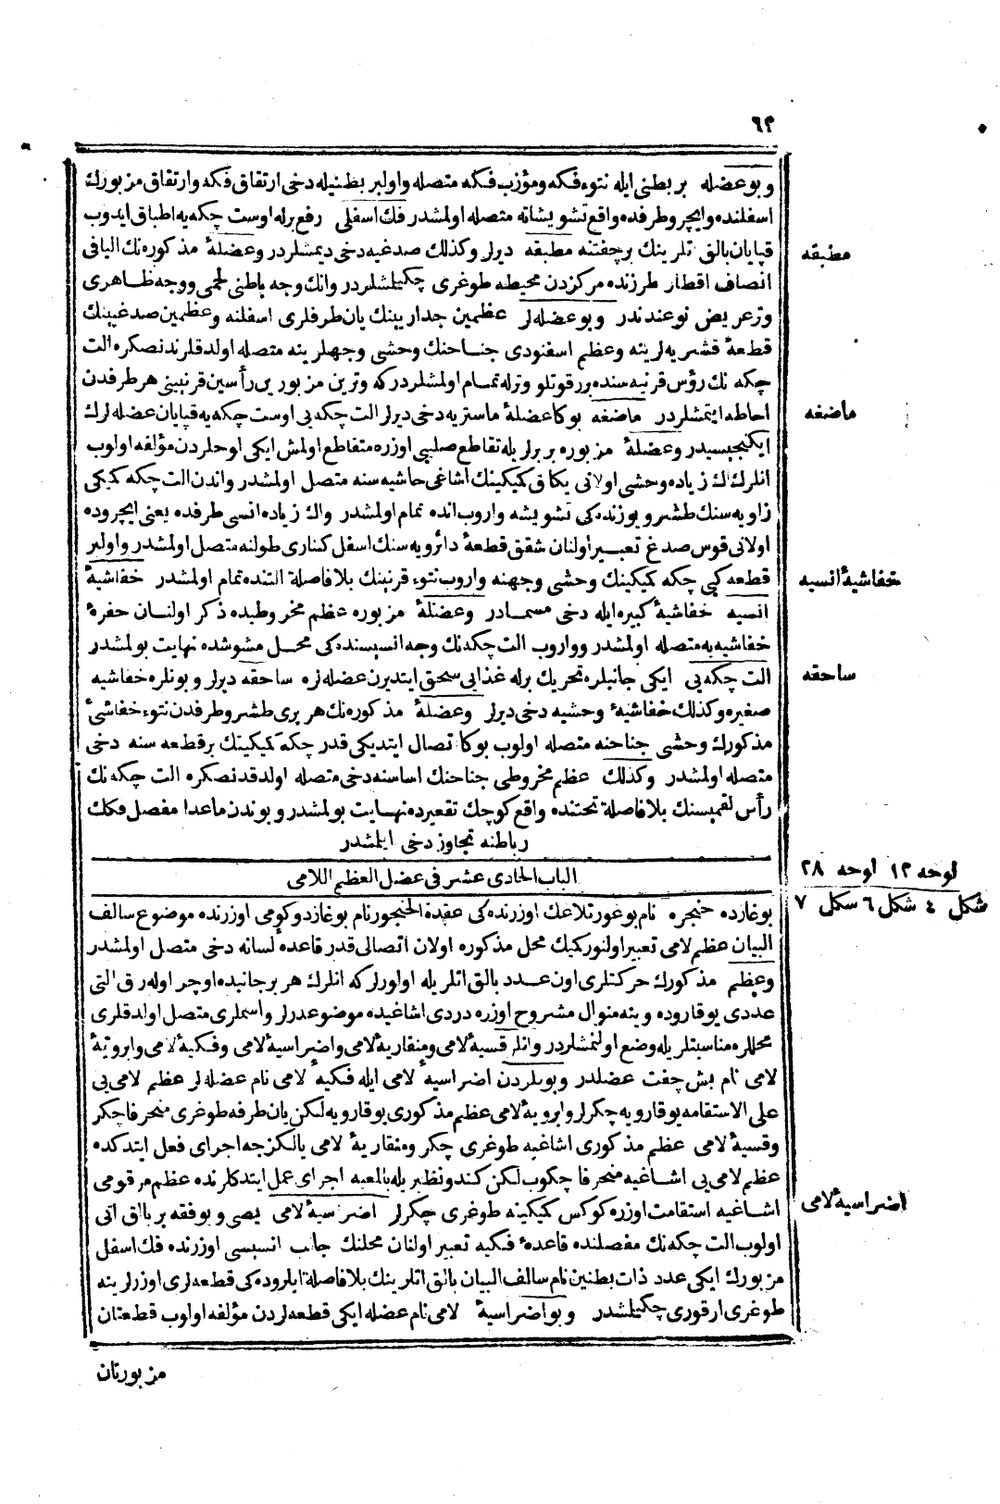 ٦٢
وبوعضله بربطنی ایله نتوء فكه ومؤزب فكه متصله واولبر بطنیله دخی ارتقاق فكه وارتقاق مزبورك
اسفلنده وایچرو طرفده واقع تشویشاته متصله اولمشدر فك اسفلی رفع برله اوست چكه یه اطباق ایدوب
قپایان بالق اتلرینك برچفتنه مطبقه دیرلر وكذلك صدغیه دخی دیمشلردر وعضلهٔ مذكوره نك الیافی
انصاف اقطار طرزنده مركزدن محیطه طوغری چكیلشلردر وانك وجه باطنی لحمی ووجه ظاهری
وترعریض نوعندندر وبوعضله لر عظمین جداریینك یان طرفلری اسفلنه وعظمین صدغیینك
قطعهٔ قشریه لرینه وعظم اسفنودی جناحنك وحشی وجهلرینه متصله اولدقلرندنصكره الت
چكه نك رؤس قرنیه سنده برر قوتلو وترله تمام اولمشلردركه وترین مزبورین رأسین قرنیینی هر طرفدن
احاطه ایتمشلردر ماضغه بوكا عضلهٔ ماستریه دخی دیرلر الت چكه یی اوست چكه یه قپایان عضله لرك
ایكنجیسیدر وعضلهٔ مزبوره بربرلریله تقاطع صلیبی اوزره متقاطع اولمش ایكی لوحلردن مؤلفه اولوب
انلرك اك زیاده وحشی اولانی یكاق كمیكینك اشاغی حاشیه سنه متصل اولمشدر واندن الت چكه كمیكی
زاویه سنك طشرو یوزنده كی تشویشه واروب انده تمام اولمشدر واك زیاده انسی طرفده یعنی ایچروده
اولانی قوس صدغ تعبیر اولنان شقق قطعهٔ دائرویه سنك اسفل كناری طولنه متصل اولمشدر واولبر
قطعه كبی چكه كمیكینك وحشی وجهنه واروب نتوء قرنینك بلافاصله التنده تمام اولمشدر خفاشیهٔ
انسیه خفاشیهٔ كبیره ایله دخی مسمادر وعضلهٔ مزبوره عظم مخروطیده ذكر اولنان حفرهٔ
خفاشیه یه متصله اولمشدر وواروب الت چكه نك وجه انسیسنده كی محل مشوشده نهایت بولمشدر
الت چكه یی ایكی جانبلره تحریك برله غذایی سحق ایتدیرن عضله لره ساحقه دیرلر وبونلره خفاشیه
صغیره وكذلك خفاشیهٔ وحشیه دخی دیرلر وعضلهٔ مذكوره نك هربری طشرو طرفدن نتوء خفاشیٔ
مذكورك وحشی جناحنه متصله اولوب بوكا تصال ایتدیكی قدر چكه كمیكینك برقطعه سنه دخی
متصله اولمشدر وكذلك عظم مخروطی جناحنك اساسنه دخی متصله اولدقدنصكره الت چكه نك
رأس لقمیسنك بلافاصله تحتنده واقع كوچك تقعیرده نهایت بولمشدر وبوندن ماعدا مفصل فكك
رباطنه تجاوز دخی ایلمشدر
الباب الحادی عشر فی عضل العظم اللامی
بوغازده حنجره نام بوغورتلاغك اوزرنده كی عقدة الحنجور نام بوغازدوكومی اوزرنده موضوع سالف
البیان عظم لامی تعبیر اولنور كمیك محل مذكوره اولان اتصالی قدر قاعدهٔ لسانه دخی متصل اولمشدر
وعظم مذكورك حركتلری اون عدد بالق اتلریله اولورلركه انلرك هر برجانبده اوچر اوله رق التی
عددی یوقاروده وینه منوال مشروح اوزره دردی اشاغیده موضوعه درلر واسملری متصل اولدقلری
محللره مناسبتلریله وضع اولنمشلردر وانلر قسیهٔ لامی ومنقاریهٔ لامی واضراسیهٔ لامی وفكیهٔ لامی وابرویهٔ
لامی نام بش چفت عضلدر وبونلردن اضراسیهٔ لامی ایله فكیهٔ لامی نام عضله لر عظم لامی یی
علی الاستقامه یوقارویه چكرلر وابرویهٔ لامی عظم مذكوری یوقارویه لكن یان طرفه طوغری منحرفا چكر
وقسیهٔ لامی عظم مذكوری اشاغیه طوغری چكر ومنقاریهٔ لامی یالكزجه اجرای فعل ایتدكده
عظم لامی یی اشاغیه منحرفا چكوب لكن كندو نظیریله بالمعیه اجرای عمل ایتدكلرنده عظم مرقومی
اشاغیه استقامت اوزره كوكس كمیكینه طوغری چكرلر اضراسیهٔ لامی یصی ویوفقه بربالق اتی
اولوب الت چكه نك مفصلنده قاعدهٔ فكیه تعبیر اولنان محلنك جانب انسیسی اوزرنده فك اسفل
مزبورك ایكی عدد ذات بطنین نام سالف البیان بالق اتلرینك بلافاصله ایلروده كی قطعه لری اوزرلرینه
طوغری ارقوری چكیلشدر وبواضراسیهٔ لامی نام عضله ایكی قطعه لردن مؤلفه اولوب قطعتان
مزبورتان
مطبقه
ماضغه
خفاشیهٔ انسیه
ساحقه
لوحه ١٢ لوحه ٢٨
شكل ٤ شكل ٦ شكل ٧
اضراسیهٔ لامی